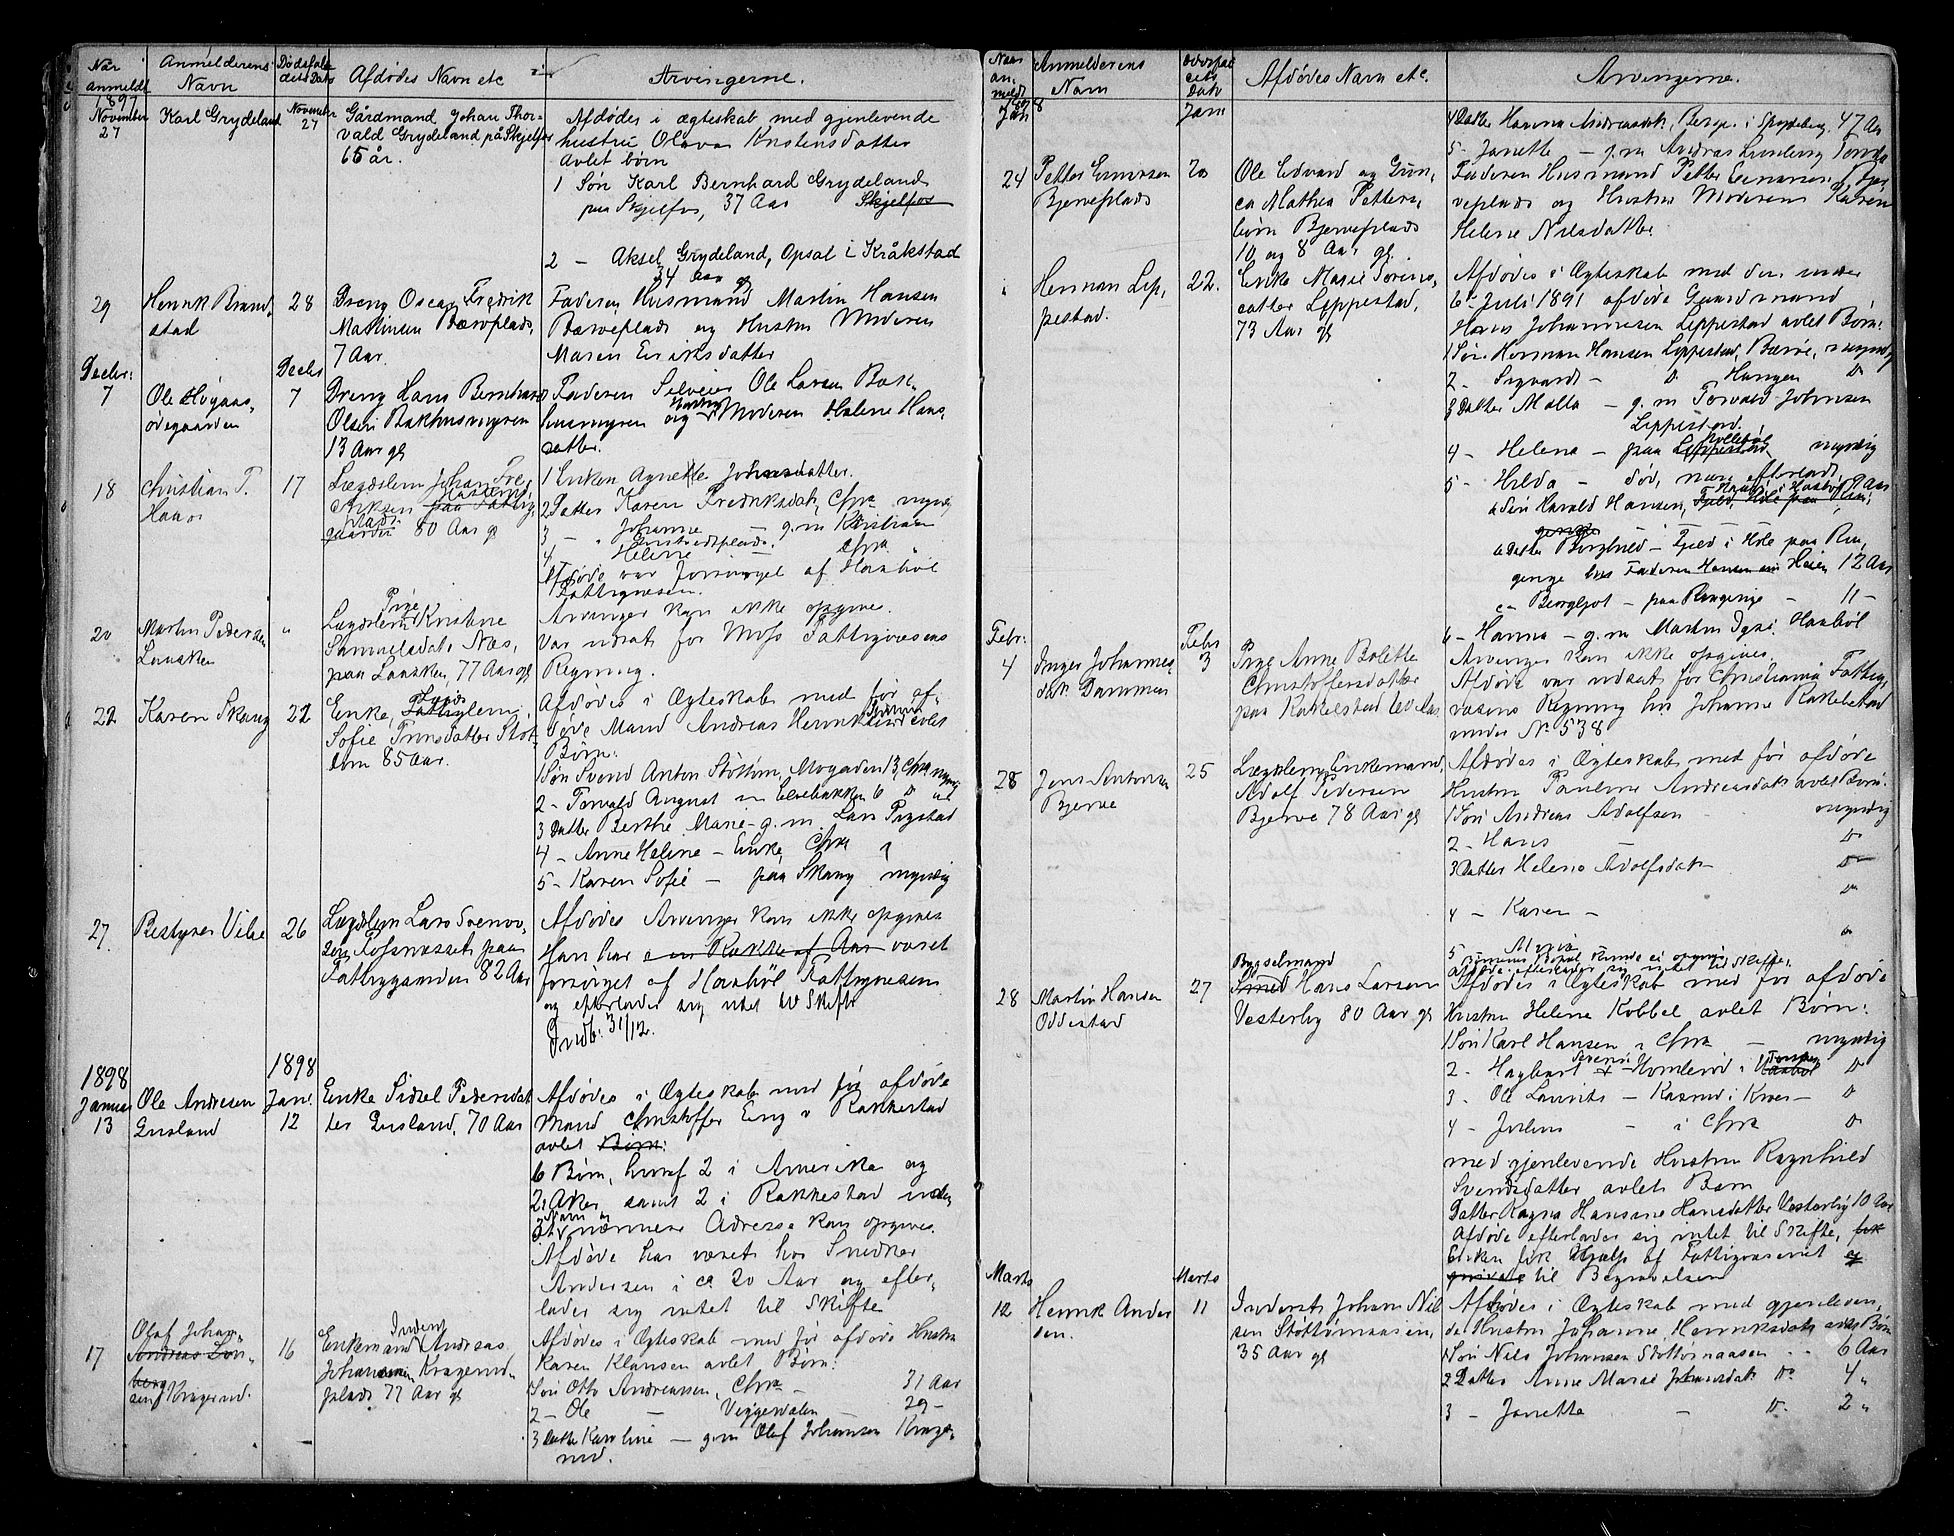 Når anmeldt
Anmelderens Navn
Dødsfaldets Dato
Afdødes Navn etc
Arvingerne.
1897
November 27
Karl Grydeland
November 27
Gårdmand Johan Thor-
vald Grydeland på Skjelfos
65 år.
Afdødes i ægteskab med gjenlevende
hustru Olava Kristensdatter
avlet børn
1 Søn Karl Bernhard Grydeland
paa Skjelfos, 37 Aar Skjelfos
2 — Aksel Grydeland, Opsal i Kråkstad
34 Aar gl
29
Henrik Brand-
stad
28
Dreng Oscar Fredrik
Martinsen Bærøplads,
7 Aar.
Faderen Husmand Martin Hansen
Bærøeplads og Hustru Moderen
Maren Eriksdatter
Decbr:
7
Ole Høgaas-
ødegaarden
Decbr
7
Dreng Hans Bernhard
Olsen Bakhusmyren
13 Aar gl
Faderen Selveier Ole Larsen Bak-
husmyren og Hustru Moderen Helene Hans-
datter.
18
Christian T.
17
Lægdslem Johan Fre-
driksen
80 Aar gl
1 Enken Agnethe Johansdatter.
2 Datter Karen Fredriksdat, Chra myndig
3 — Johanne — g.m Kristian
4 Helene — Chra "
Afdøde var forsørget af Haabøl
Fattigvæsen.
20
Martin Pedersen
"
Pige
Lægdslem Kristine
Samuelsdat. Næs,
77 Aar gl
Arvinger kan ikke opgives.
Var udsat for Moss Fattigvæsens
Regning.
22
Karen Skaug
22
Enke, Lægds
Fattiglem,
Sofie
85 Aar.
Afdødes i Ægteskab med før af-
døde Mand Andreas Henriksen avlet
Børn:
1 Søn Svend Anton Støttum, Mogaden 13, Chra myndig
2 — Torvald August —
3 Datter Berthe Marie — g.m Lars Prestad
4 — Anne Helene — Enke, Chra
5 — Karen Sofie — paa Skaug myndig
27
Bestyrer Vibe
26
Lægdslem Lars
paa
Fattiggaarden 82 Aar
Afdødes Arvinger kan ikke opgives
Han har en Række af Aar været
forsørget af Haabøl Fattigvæsen
og efterlader sig intet til Skifte
Indb. 31/12.
1898
Januar
13
Ole Andresen
1898
Jan.
12
Enke Sidsel Pedersdat-
ter 70 Aar
Afdødes i Ægteskab med før afdøde
Mand Christoffer Eng i Rakkestad
avlet Børn:
6 Børn, hvoraf 2 i Amerika og
2 i Aker samt 2 i Rakkestad uden
at Navn og nærmere Adresse kan opgives.
Afdøde har været hos Snedker
Andersen i ca 20 Aar og efter-
lader sig intet til Skifte
17
Olaf Johan-
sen Kragerud.
16
Inderst
Enkemand Andreas
Johannesen Kragerud-
plads 77 Aar gl
Afdødes i Ægteskab med før afdøde Hustru
Karen Klausen avlet Børn:
1 Søn Otto Andreassen, Chra — 31 Aar
2 — Ole — Viggerdalen — 29 —
3 Datter Karoline — g.m Olaf Johansen Krage-
rud.
Naar anmeldt
Anmelderens Navn
Dødsfaldets Dato
Afdødes Navn etc.
Arvingerne.
1898
Jan
Jan
4 Datter Hanna Andreasdat, i Spydeberg. 47 Aar
5 — Janette — g.m Andreas
24
Petter Einarsen
Bjerveplads
20
Ole Edvard og Gun-
da Mathea Petters-
børn Bjerveplads
10 og 8 Aar gl.
Faderen Husmand Petter Einarsen Bjer-
veplads og Hustru Moderen Karen
Helene Nilsdatter.
"
Herman Lep-
pestad.
22.
Enke Marie Torins-
datter Leppestad,
73 Aar gl
Afdødes i Ægteskab med den under
6te Juli 1891 afdøde Gaardmand
Hans Johannesen Leppestad avlet Børn:
1 Søn Herman Hansen Leppestad, Bærøe, myndig
2 — Sigvard — Do Haugen Do
3 Datter Malla — g.m Torvald Johnsen
Leppestad.
4 — Helene — paa Leppestad myndig
5 — Hilda — død, men efterladt
a Søn Harald Hansen, 9 Aar
b Datter Borghild — Fjeld i Hole paa Rin-
gerige hos Faderen Hansen Heien 12 Aar
c — Bergljot — paa Ringerige — 11 —
6 — Hanna — g.m Martin Haabøl
Febr.
4
Inger Johannes-
dat. Dammen
Febr
3
Pige Anne Bolette
Christoffersdatter
paa Rakkestad
Arvinger kan ikke opgives.
Afdøde var udsat for Christiania Fattig-
væsens Regning hos Johanne Rakkestad
under No 538
28
Jens Antonsen
Bjerve
25
Lægdslem Enkemand
Adolf Pedersen
Bjerve 78 Aar gl
Afdødes i Ægteskab med før afdøde
Hustru Pauline Andreasdat avlet Børn:
1 Søn Andreas Adolfsen — myndig
2 — Hans — Do
3 Datter Helene Adolfsdat — Do
4 — Karen — Do
5 Maria Do
Børnenes Bopæl kunde ei opgives
Afdøde efterlader sig intet til Skifte.
28
Martin Hansen
Oddestad
27
Bygselmand
Smed Hans Larsen
Vesterby 80 Aar gl
Afdødes i Ægteskab med før afdøde
Hustru Helene Kobbel avlet Børn:
1 Søn Karl Hansen i Chra — myndig
2 — Hagbart — Homlerød i Do
3 — Ole Laurits — Do
4 — Julius — i Chra Do
med gjenlevende Hustru Ragnhild
Svendsdatter avlet Barn
Datter Ragna Hansine Hansdatter Vesterby 10 Aar
Afdøde efterlader sig intet til Skifte, fik
Enken fik Hjælp af Fattigvæsenet og
private til Begravelsen
Marts
12
Henrik Ander-
sen.
Marts
11
Inderst Johan Nil-
sen Støttumaasen,
35 Aar gl
Afdødes i Ægteskab med gjenleven-
de Hustru Johanne Henriksdat avlet Børn
1 Søn Nils Johansen Støttumaasen — 6 Aar
2 Datter Anne Marie Johansdat Do 4 "
3 — Janette — Do. 2 "